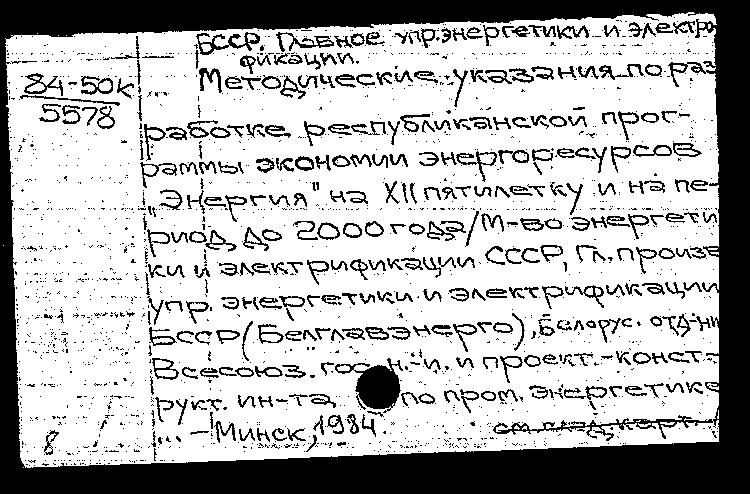 БССР. Главное упр. энергетики и электри
фикации.
84-50к
5578
... Методические указания по раз
работке республиканской прог-
раммы экономии энергоресурсов
"Энергия" на XII пятилетку и на пе-
риод до 2000 года/М-во энергети
ки и электрификации СССР, Гл. произв
упр. энергетики и электрификации
БССР (Белглавэнерго), Белорус. отд-ни
Всесоюз. гос. н.-и. и проект.-конст-
рукт. ин-та по пром. энергетике
... – Минск, 1984.
см. след. карт.
8